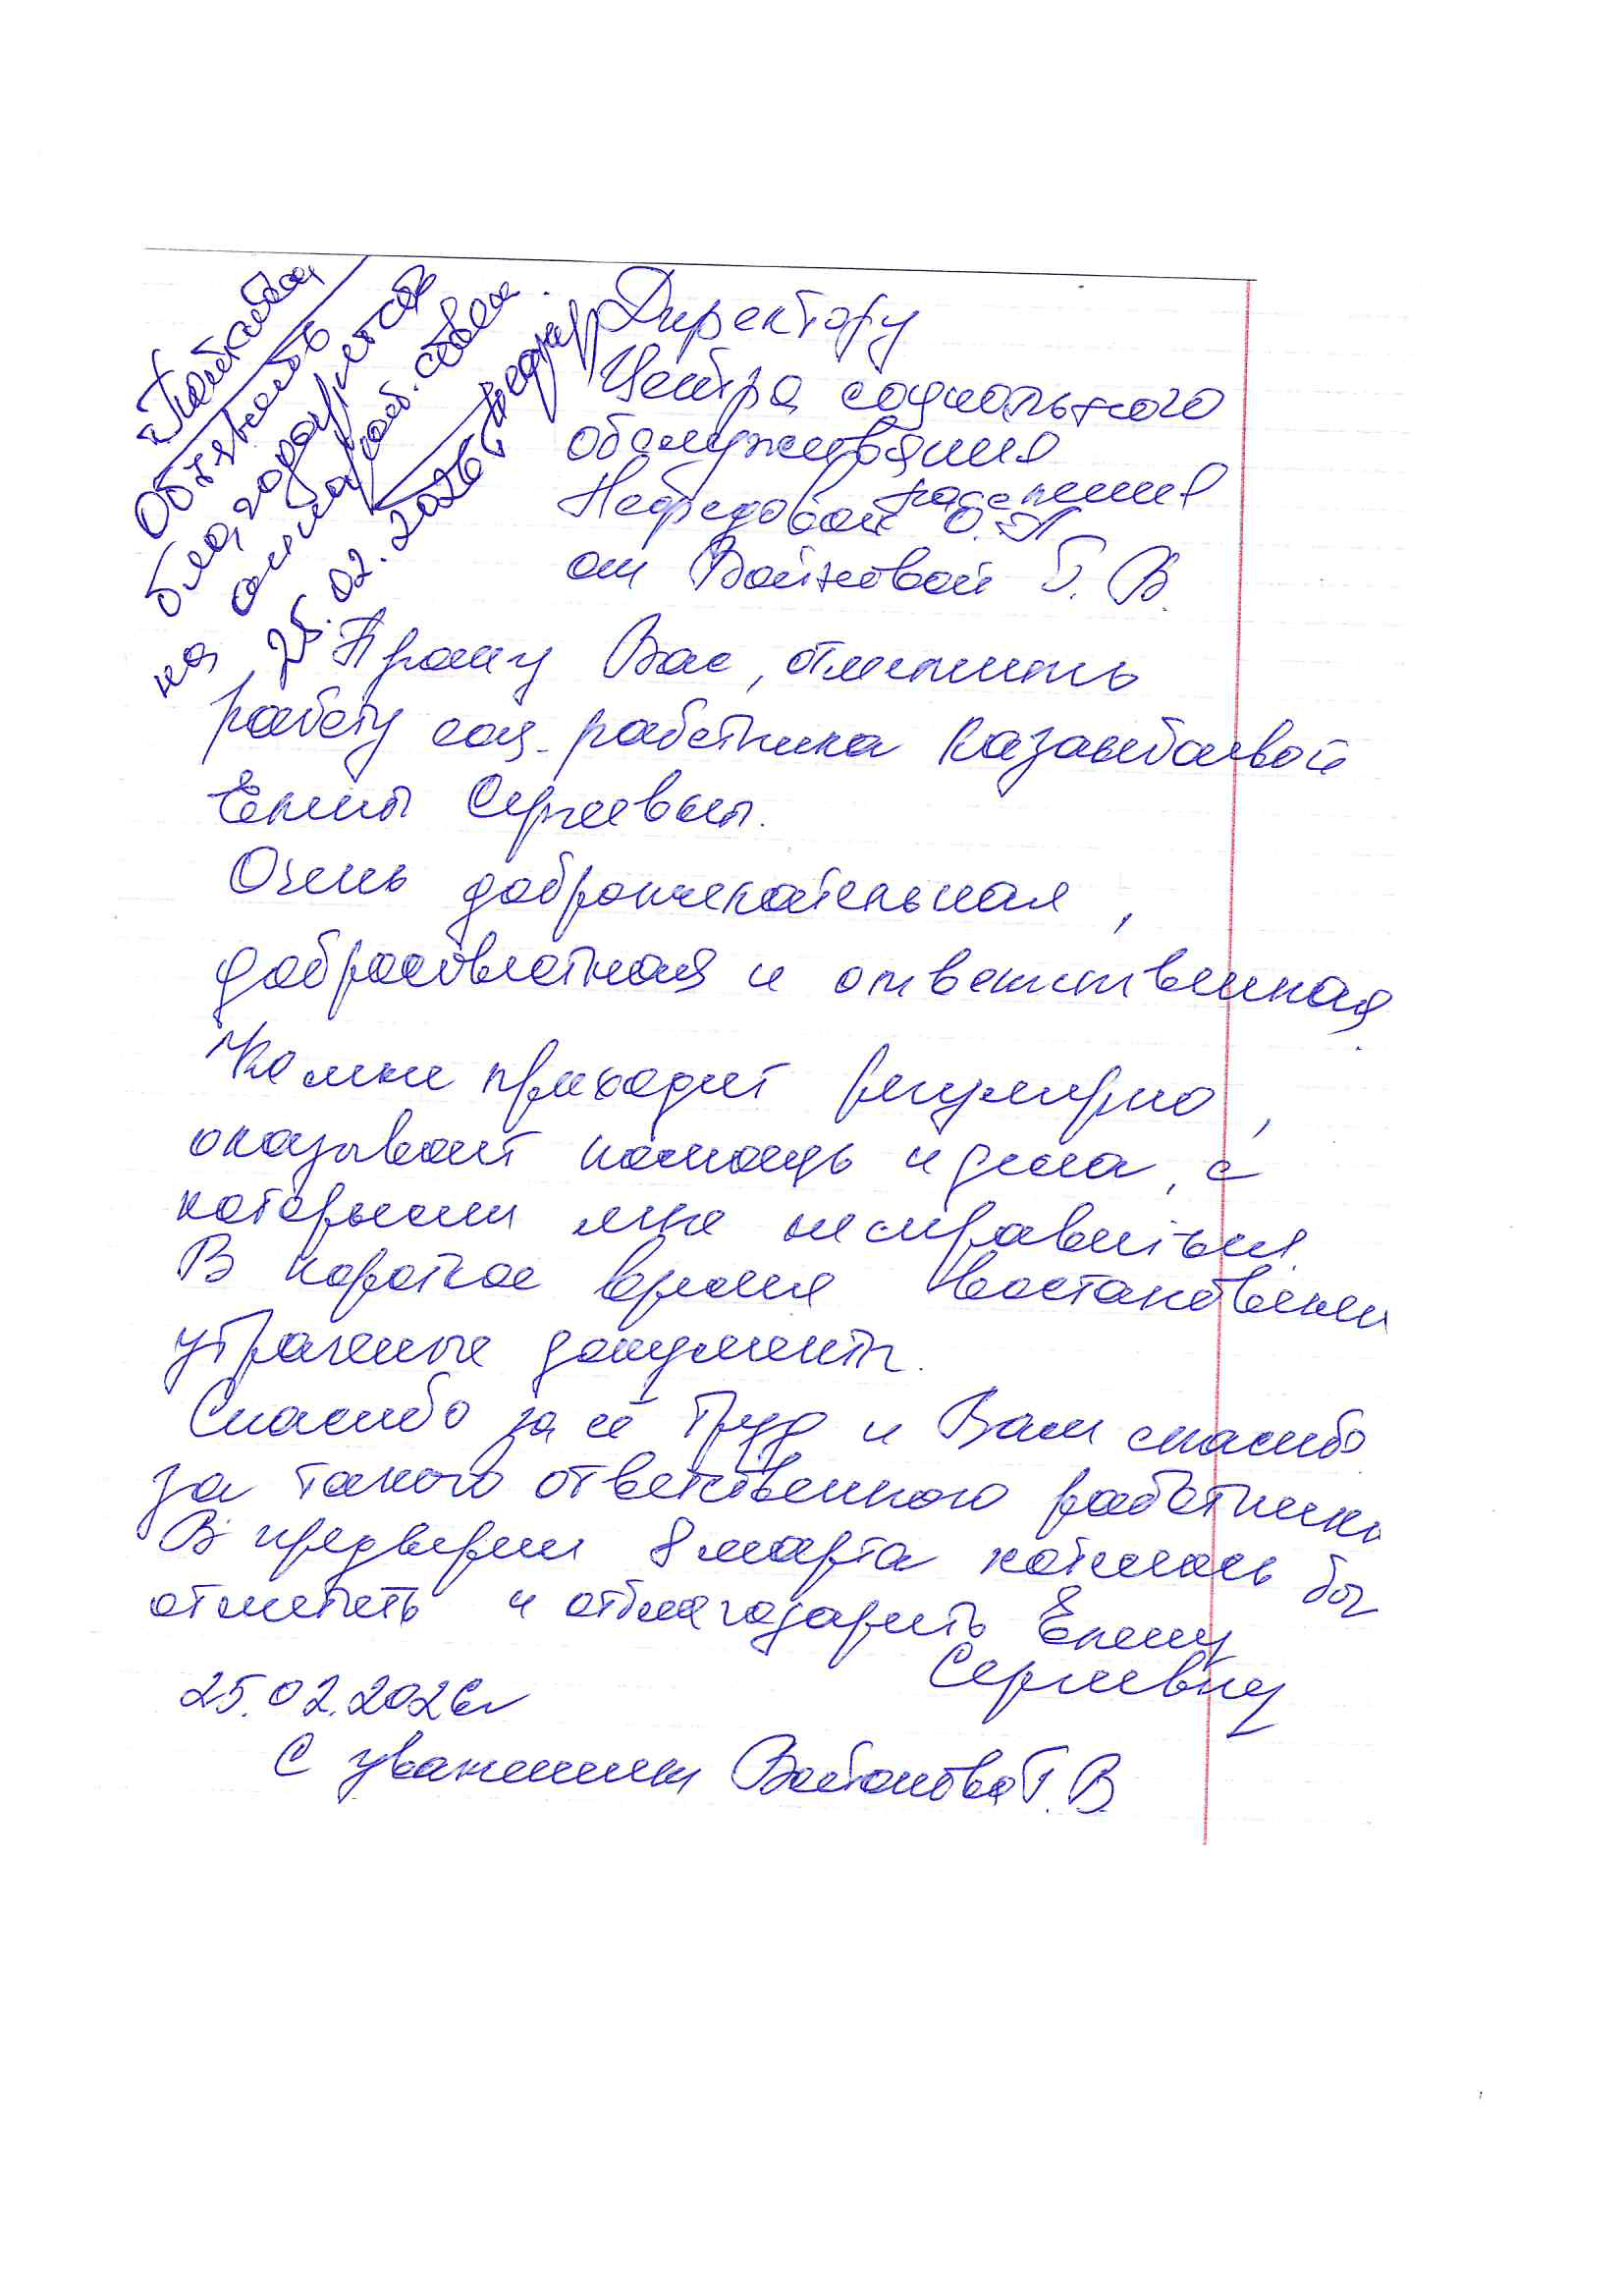 Объявить
благодарность
на
25.02.2026г.
Директору
Центра социального
обслуживания
населения
Нефедовой О.А.
от Г. В.
Прошу Вас, отметить
работу соц. работника Казанбаевой
Елены Сергеевны.
Очень доброжелательная,
добросовестная и ответственная.
Ко мне приходит регулярно,
оказывает помощь и дела, с
которыми мне не справиться.
В короткое время
утраченые документы.
Спасибо за её труд и Вам спасибо
за такого ответственного работника
В предверии 8 марта хотелось бы
отметить и отблагодарить Елену
Сергеевну
25.02.2026г
С уважением Г. В.